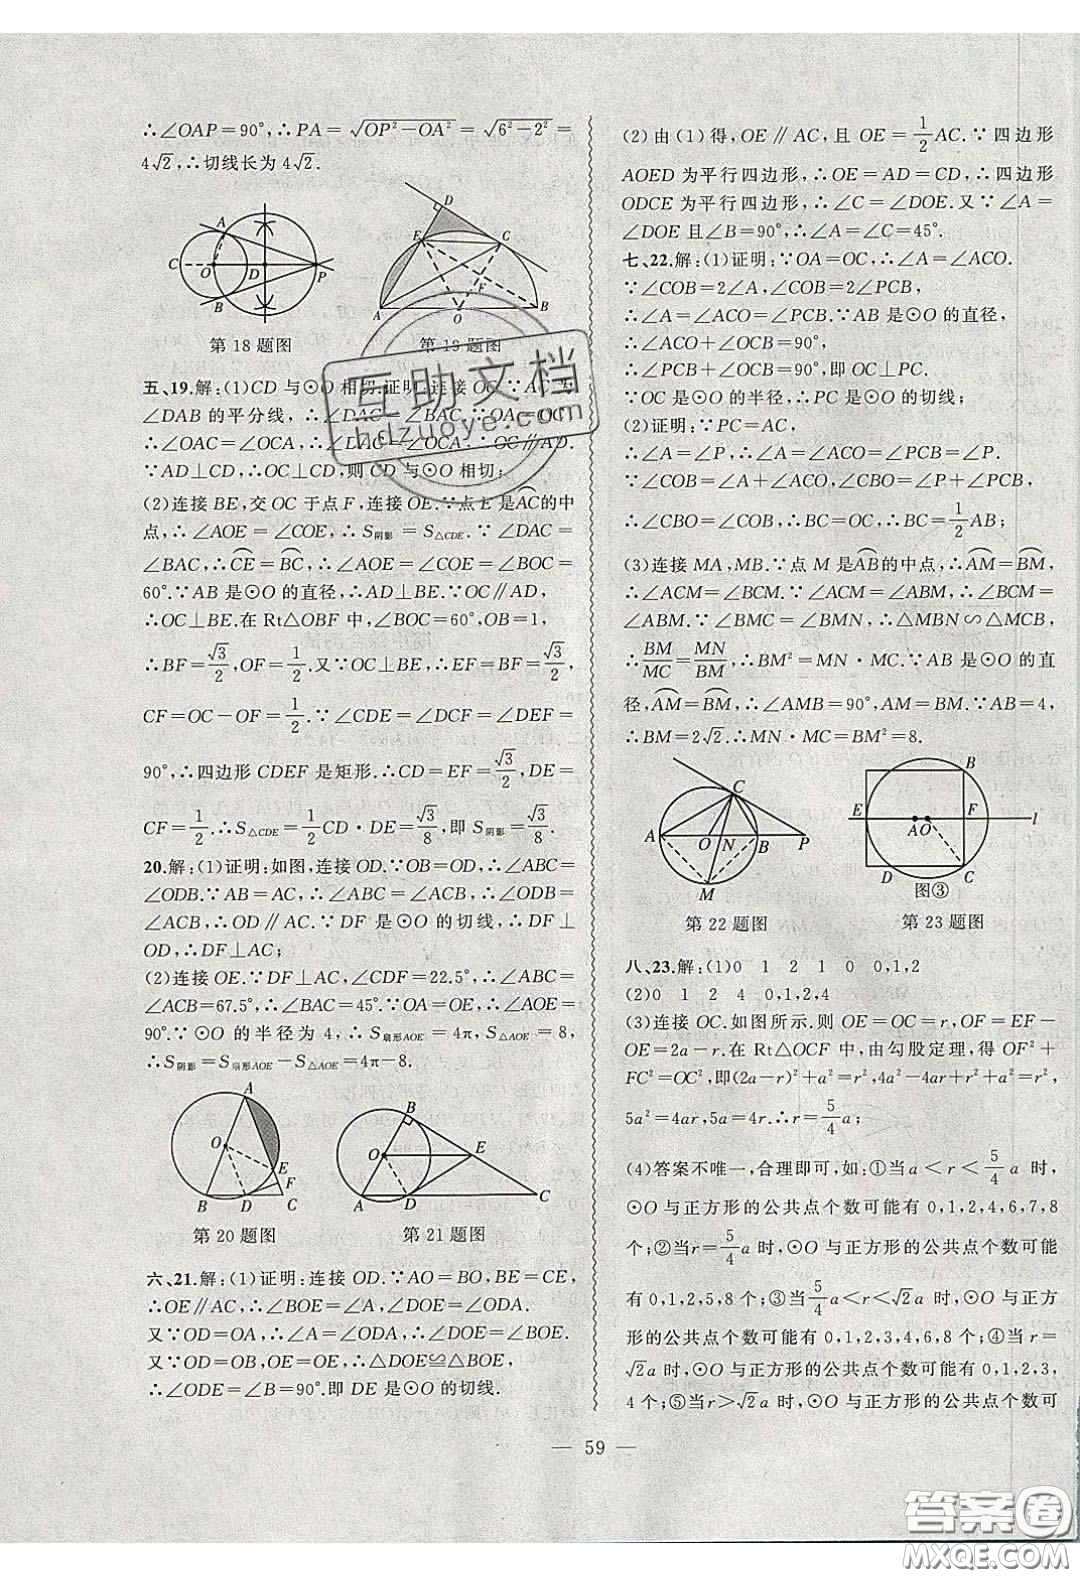 ∴∠OAP=90°,∴PA=√(OP²-OA²)=√(6²-2²)=
4√2,∴切线长为4√2.
A
C
O
D
P
B
第18题图
D
E
C
F
A
O
B
第19题图
五、19.解:(1)CD与⊙O相切.证明:连接OC.∵AC为
∠DAB的平分线,∴∠DAC=∠BAC.∵OA=OC,
∴∠OAC=∠OCA,∴∠DAC=∠OCA.∴OC∥AD.
∵AD⊥CD,∴OC⊥CD,则CD与⊙O相切;
(2)连接BE,交OC于点F,连接OE.∵点E是⌒AC的中
点,∴∠AOE=∠COE,∴S阴影=S△CDE.∵∠DAC=
∠BAC,∴⌒CE=⌒BC,∴∠AOE=∠COE=∠BOC=
60°.∵AB是⊙O的直径,∴AD⊥BE.∵OC∥AD,
∴OC⊥BE.在Rt△OBF中,∠BOC=60°,OB=1,
∴BF=√3/2,OF=1/2.又∵OC⊥BE,∴EF=BF=√3/2,
CF=OC-OF=1/2.∵∠CDE=∠DCF=∠DEF=
90°,∴四边形CDEF是矩形.∴CD=EF=√3/2,DE=
CF=1/2.∴S△CDE=1/2CD·DE=√3/8,即S阴影=√3/8.
20.解:(1)证明:如图,连接OD.∵OB=OD,∴∠ABC=
∠ODB.∵AB=AC,∴∠ABC=∠ACB,∴∠ODB=
∠ACB,∴OD∥AC.∵DF是⊙O的切线,∴DF⊥
OD,∴DF⊥AC;
(2)连接OE.∵DF⊥AC,∠CDF=22.5°,∴∠ABC=
∠ACB=67.5°,∴∠BAC=45°.∵OA=OE,∴∠AOE=
90°.∵⊙O的半径为4,∴S扇形AOE=4π,S△AOE=8,
∴S阴影=S扇形AOE-S△AOE=4π-8.
A
O
E
F
B
D
C
第20题图
B
O
E
A
D
C
第21题图
六、21.解:(1)证明:连接OD.∵AO=BO,BE=CE,
∴OE∥AC,∴∠BOE=∠A,∠DOE=∠ODA.
又∵OD=OA,∴∠A=∠ODA,∴∠DOE=∠BOE.
又∵OD=OB,OE=OE,∴△DOE≌△BOE,
∴∠ODE=∠B=90°.即DE是⊙O的切线.
(2)由(1)得,OE∥AC,且OE=1/2AC.∵四边形
AOED为平行四边形,∴OE=AD=CD,∴四边形
ODCE为平行四边形,∴∠C=∠DOE.又∵∠A=
∠DOE且∠B=90°,∴∠A=∠C=45°.
七、22.解:(1)证明:∵OA=OC,∴∠A=∠ACO.
∵∠COB=2∠A,∠COB=2∠PCB,
∴∠A=∠ACO=∠PCB.∵AB是⊙O的直径,
∴∠ACO+∠OCB=90°,
∴∠PCB+∠OCB=90°,即OC⊥PC.
∵OC是⊙O的半径,∴PC是⊙O的切线;
(2)证明:∵PC=AC,
∴∠A=∠P,∴∠A=∠ACO=∠PCB=∠P.
∵∠COB=∠A+∠ACO,∠CBO=∠P+∠PCB,
∴∠CBO=∠COB,∴BC=OC,∴BC=1/2AB;
(3)连接MA,MB.∵点M是⌒AB的中点,∴⌒AM=⌒BM,
∴∠ACM=∠BCM.∵∠ACM=∠ABM,∴∠BCM=
∠ABM.∵∠BMC=∠BMN,∴△MBN∽△MCB,
∴BM/MC=MN/BM,∴BM²=MN·MC.∵AB是⊙O的直
径,⌒AM=⌒BM,∴∠AMB=90°,AM=BM.∵AB=4,
∴BM=2√2.∴MN·MC=BM²=8.
C
A
O
N
B
P
M
第22题图
B
E
F
A
O
l
D
C
图③
第23题图
八、23.解:(1)0 1 2 1 0 0,1,2
(2)0 1 2 4 0,1,2,4
(3)连接OC.如图所示.则OE=OC=r,OF=EF-
OE=2a-r.在Rt△OCF中,由勾股定理,得OF²+
FC²=OC²,即(2a-r)²+a²=r²,4a²-4ar+r²+a²=r²,
5a²=4ar,5a=4r.∴r=5/4a;
(4)答案不唯一,合理即可,如:①当a<r<5/4a时,
⊙O与正方形的公共点个数可能有0,1,2,4,6,7,8
个;②当r=5/4a时,⊙O与正方形的公共点个数可能
有0,1,2,5,8个;③当5/4a<r<√2a时,⊙O与正方
形的公共点个数可能有0,1,2,3,4,6,8个;④当r=
√2a时,⊙O与正方形的公共点个数可能有0,1,2,3,
4个;⑤当r>√2a时,⊙O与正方形的公共点个数可
— 59 —
互助文档
hdzuoye.com
答案圈
MXQE.COM